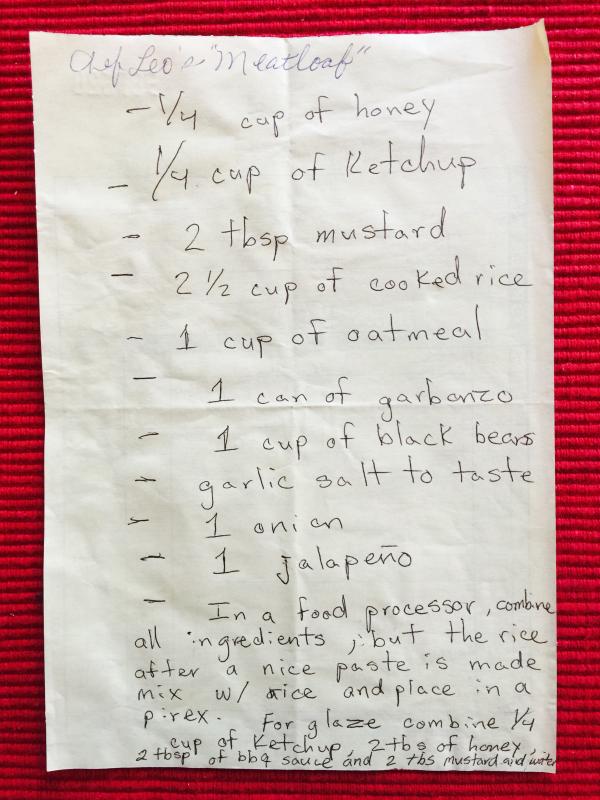 Chef Leo's "Meatloaf"
- 1/4 cup of honey
- 1/4 cup of Ketchup
- 2 tbsp mustard
- 2 1/2 cup of cooked rice
- 1 cup of oatmeal
- 1 can of garbanzo
- 1 cup of black beans
- garlic salt to taste
- 1 onion
- 1 jalapeño
- In a food processor, combine
all ingredients, but the rice
after a nice paste is made
mix w/ rice and place in a
pirex. For glaze combine 1/4
cup of Ketchup, 2 tbs of honey,
2 tbsp of bbq sauce and 2 tbs mustard and water